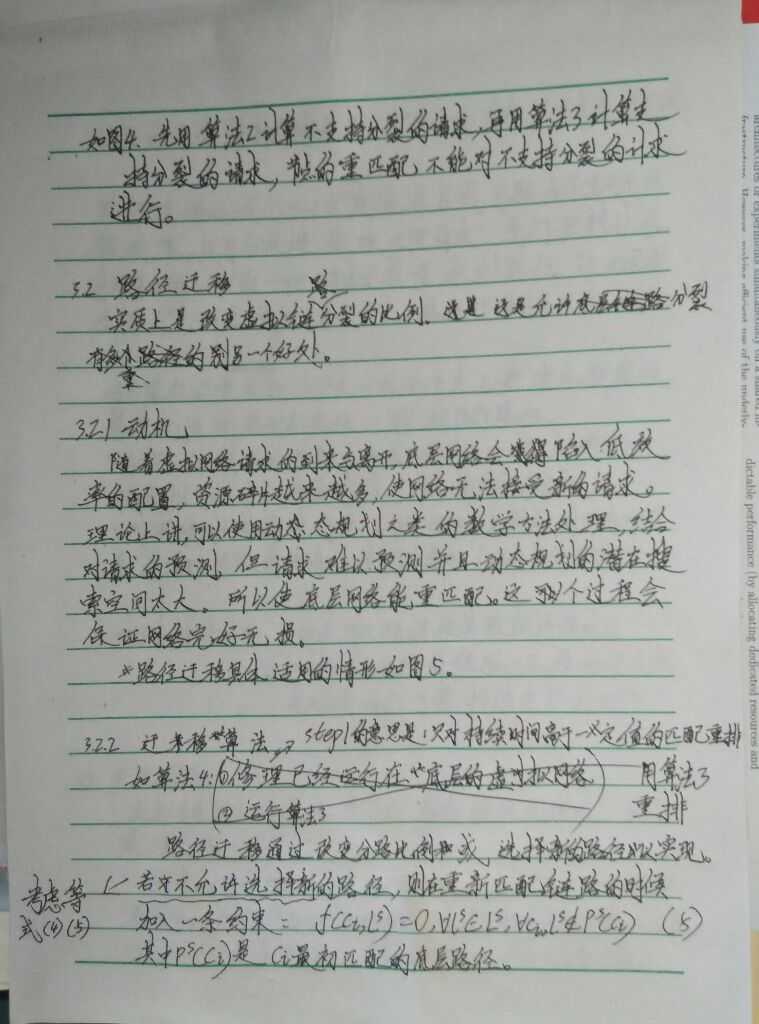 如图4. 先用算法2计算不支持分裂的请求,再用算法3计算支
持分裂的请求,节点的重匹配不能对不支持分裂的计求
进行。
3.2 路径迁移
路
实质上是改变虚拟链分裂的比例. 这是允许底层链路分裂
有多个路径的另一个好处。
3.2.1 动机
随着虚拟网络请求的到来与离开,底层网络会陷入低效
率的配置,资源碎片越来越多,使网络无法接受新的请求。
理论上讲,可以使用动态态规划之类的数学方法处理,结合
对请求的预测. 但请求难以预测并且动态规划的潜在搜
索空间太大。所以使底层网络能重匹配。这个过程会
保证网络完好无损。
*路径迁移具体适用的情形如图5。
3.2.2 迁移算法 → step1的意思是:只对持续时间高于一定值的匹配重排
如算法4:①修理已经运行在底层的虚拟网络 用算法3
② 运行算法3 重排
路径迁移通过改变分路比例和或选择新的路径以实现。
考虑等 若不允许选择新的路径,则在重新匹配链路的时候
式(4)(5) 加入一条约束: f(Ci, lˢ)=0, ∀lˢ∈Lˢ, ∀Ci, lˢ∉Pˢ(Ci) (5)
其中Pˢ(Ci)是Ci最初匹配的底层路径。
architecture or experiments simultaneously on a shared in-
frastructure. However, making efficient use of the underly-
dictable performance (by allocating dedicated resources and